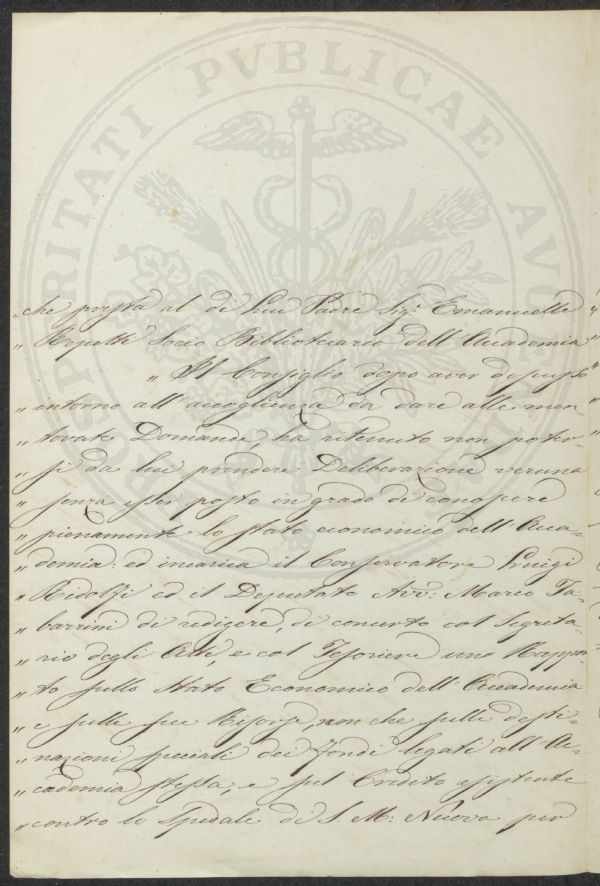 PROSPERITATI PVBLICAE AVGENDAE
„ che presta al di Lui Padre Sig: Emanuelle
„ Repetti Socio Bibliotecario dell'Accademia
„ Il Consiglio dopo aver discusso
„ intorno all'accoglienza da dare alle men
„ tovate Domande, ha ritenuto non poter-
„ si da lui prendere Deliberazione veruna
„ senza esser posto in grado di conoscere
„ pienamente lo stato economico dell'Acca-
„ demia: ed incarica il Conservatore Luigi
„ Ridolfi ed il Deputato Avv: Marco Ta-
„ barrini di redigere, di concerto col Segreta-
„ rio degli Atti, e col Tesoriere uno Rappor
„ to sullo Stato Economico dell'Accademia
„ e sulle sue Risorse, non che sulle desti-
„ nazioni speciali dei fondi legati all'Ac-
„ cademia stessa, e sul Credito esistente
„ contro lo Spedale di S. M: Nuova per